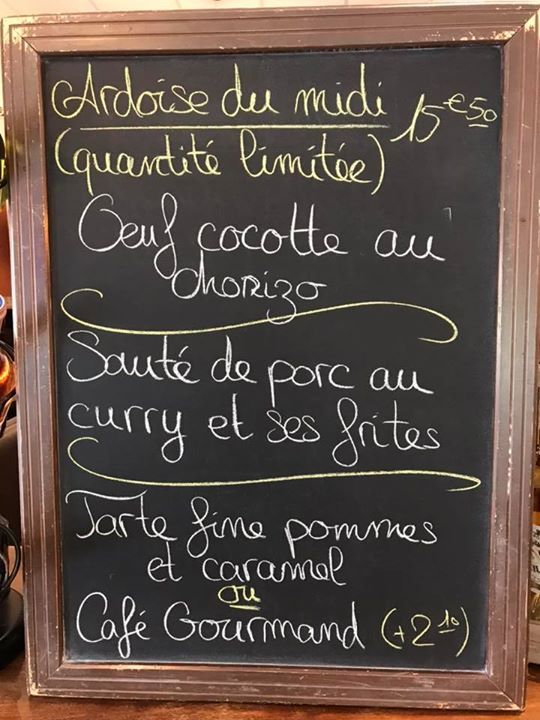 Ardoise du midi 15€50
(quantité limitée)
Oeuf cocotte au
chorizo
Sauté de porc au
curry et ses frites
Tarte fine pommes
et caramel
ou
Café Gourmand (+2 10)